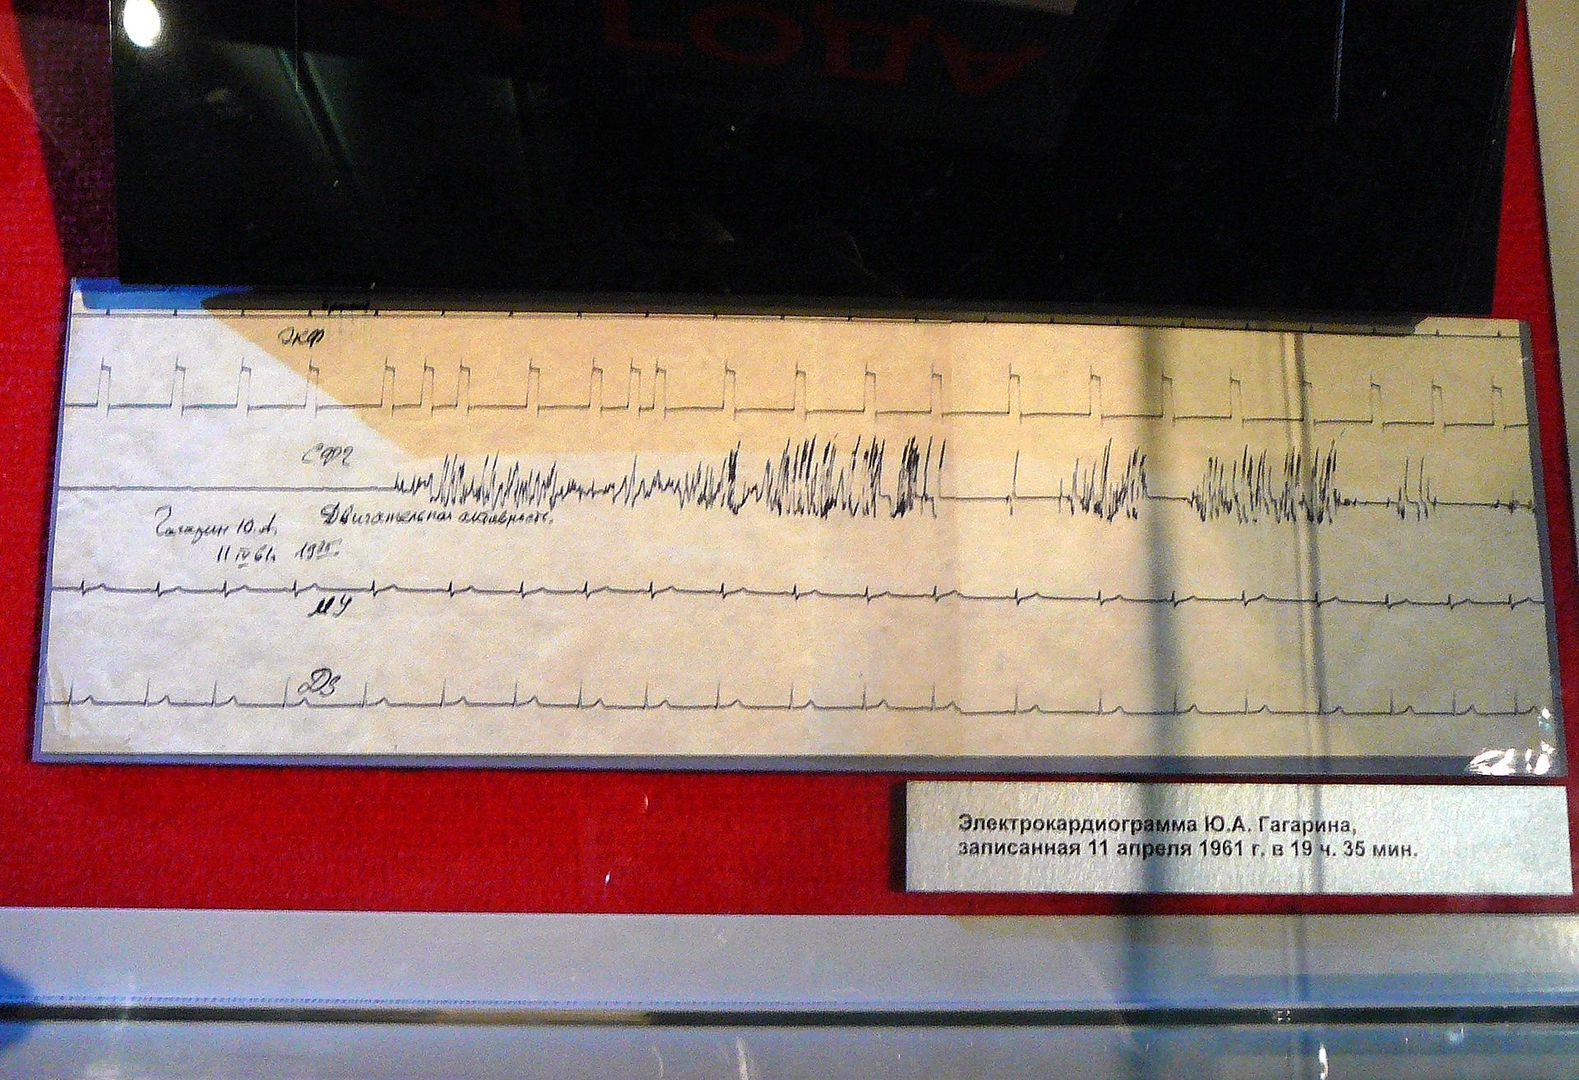 ГОДА
ЭКФ
СФГ
Гагарин Ю.А. Двигательная активность.
11 IV 61. 19 35.
МУ
ДЗ
Электрокардиограмма Ю.А. Гагарина,
записанная 11 апреля 1961 г. в 19 ч. 35 мин.